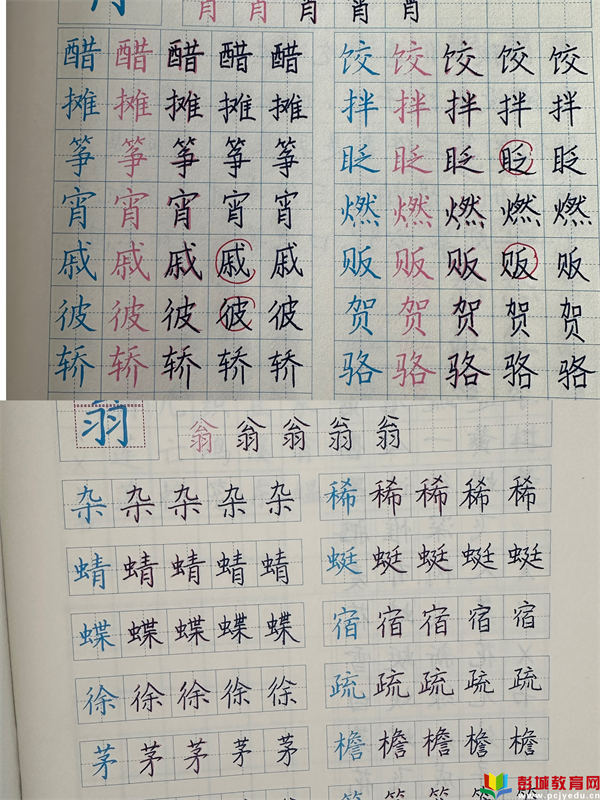 肖肖肖肖肖
醋醋醋醋醋 饺饺饺饺饺
摊摊摊摊摊 拌拌拌拌拌
筝筝筝筝筝 眨眨眨眨眨
宵宵宵宵宵 燃燃燃燃燃
戚戚戚戚戚 贩贩贩贩贩
彼彼彼彼彼 贺贺贺贺贺
轿轿轿轿轿 骆骆骆骆骆
翁 翁翁翁翁翁
杂杂杂杂杂 稀稀稀稀稀
蜻蜻蜻蜻蜻 蜓蜓蜓蜓蜓
蝶蝶蝶蝶蝶 宿宿宿宿宿
徐徐徐徐徐 疏疏疏疏疏
茅茅茅茅茅 檐檐檐檐檐
彭城教育网
www.pcjyedu.cn